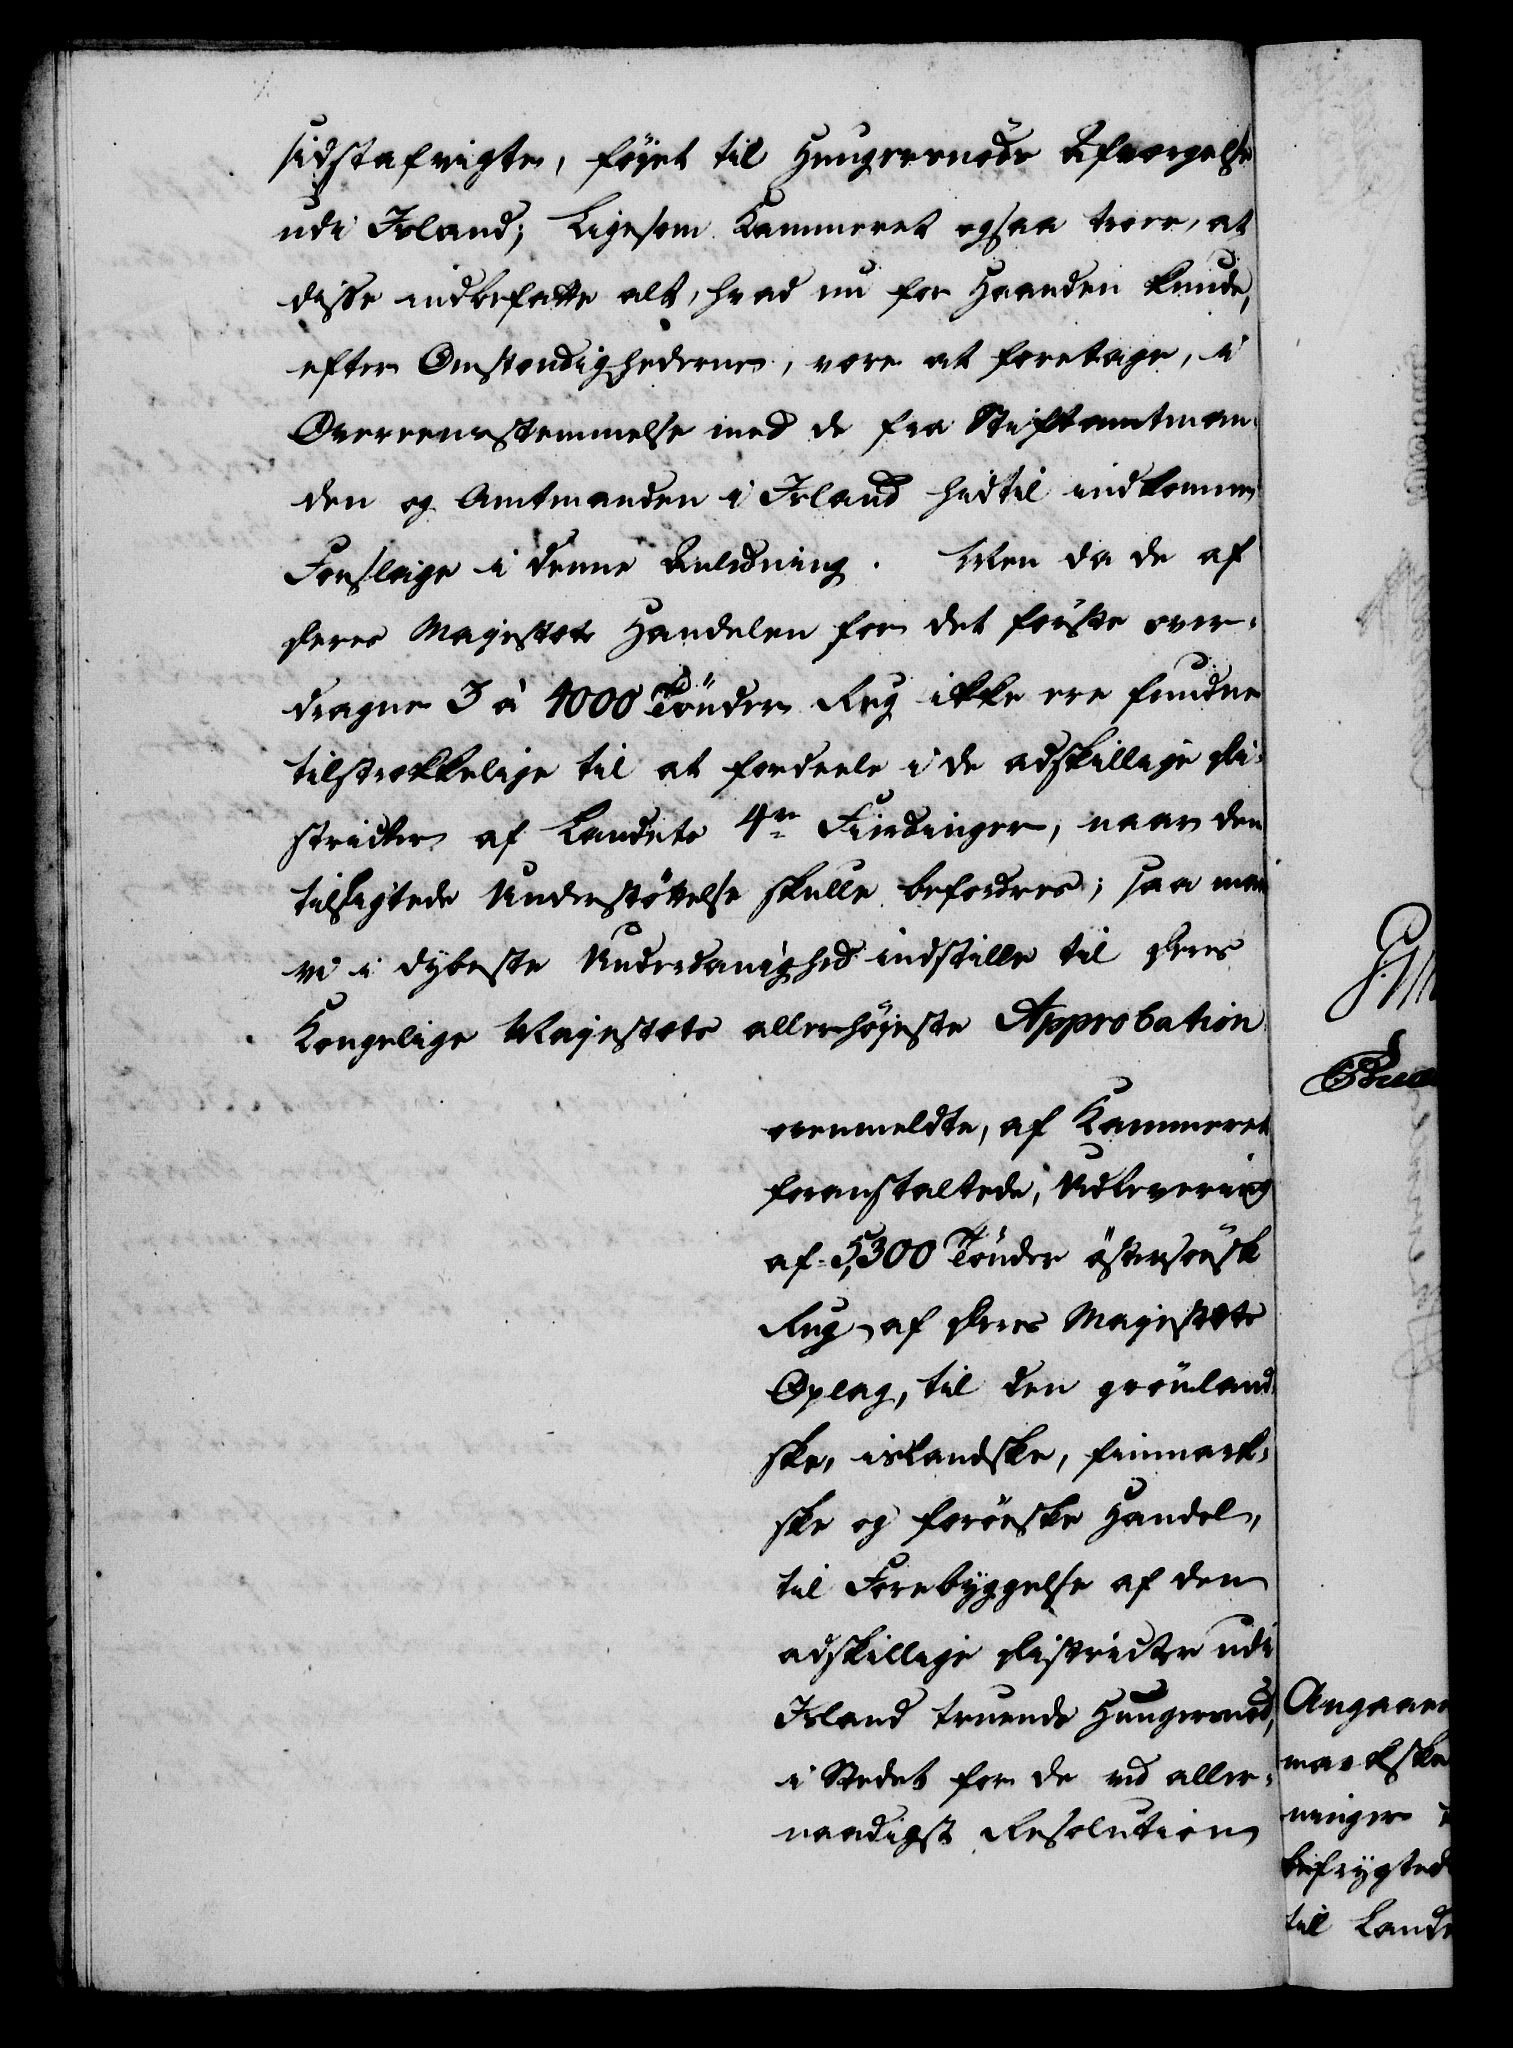 sidstafvigte, føjet til Hungersnøds Afværgelse
udi Island; Ligesom Kammeret ogsaa troer, at
disse indbefatte alt, hvad nu for Haanden kunde,
efter Omstændighederne, være at foretage, i
Overeensstemmelse med de fra Stiftamtman-
den og Amtmanden i Island hidtil indkomne
Forslage i denne Anledning. Men da de af
Deres Majestæt Handelen for det første over-
dragne 3 à 4000 Tönder Rug ikke ere fundne
tilstrækkelige til at fordeele i de adskillige Di-
stricter af Landets 4re Fierdinger, naar den
tilsigtede Understøttelse skulle befordres; saa maae
vi i dybeste Underdanighed indstille til Deres
Kongelige Majestæts allerhøjeste Approbation
ovenmeldte, af Kammeret
foranstaltede, Udlevering
af 5,300 Tönder östersöisk
Rug af Deres Majestæts
Oplag, til den grönland-
ske, islandske, finmark-
ske og færöeske Handel,
til Forebyggelse af den
adskillige Districter udi
Island truende Hungersnød,
i Stedet for de ved aller-
naadigst Resolution
Angaaen
markske
ninger
befrygted
til Lande